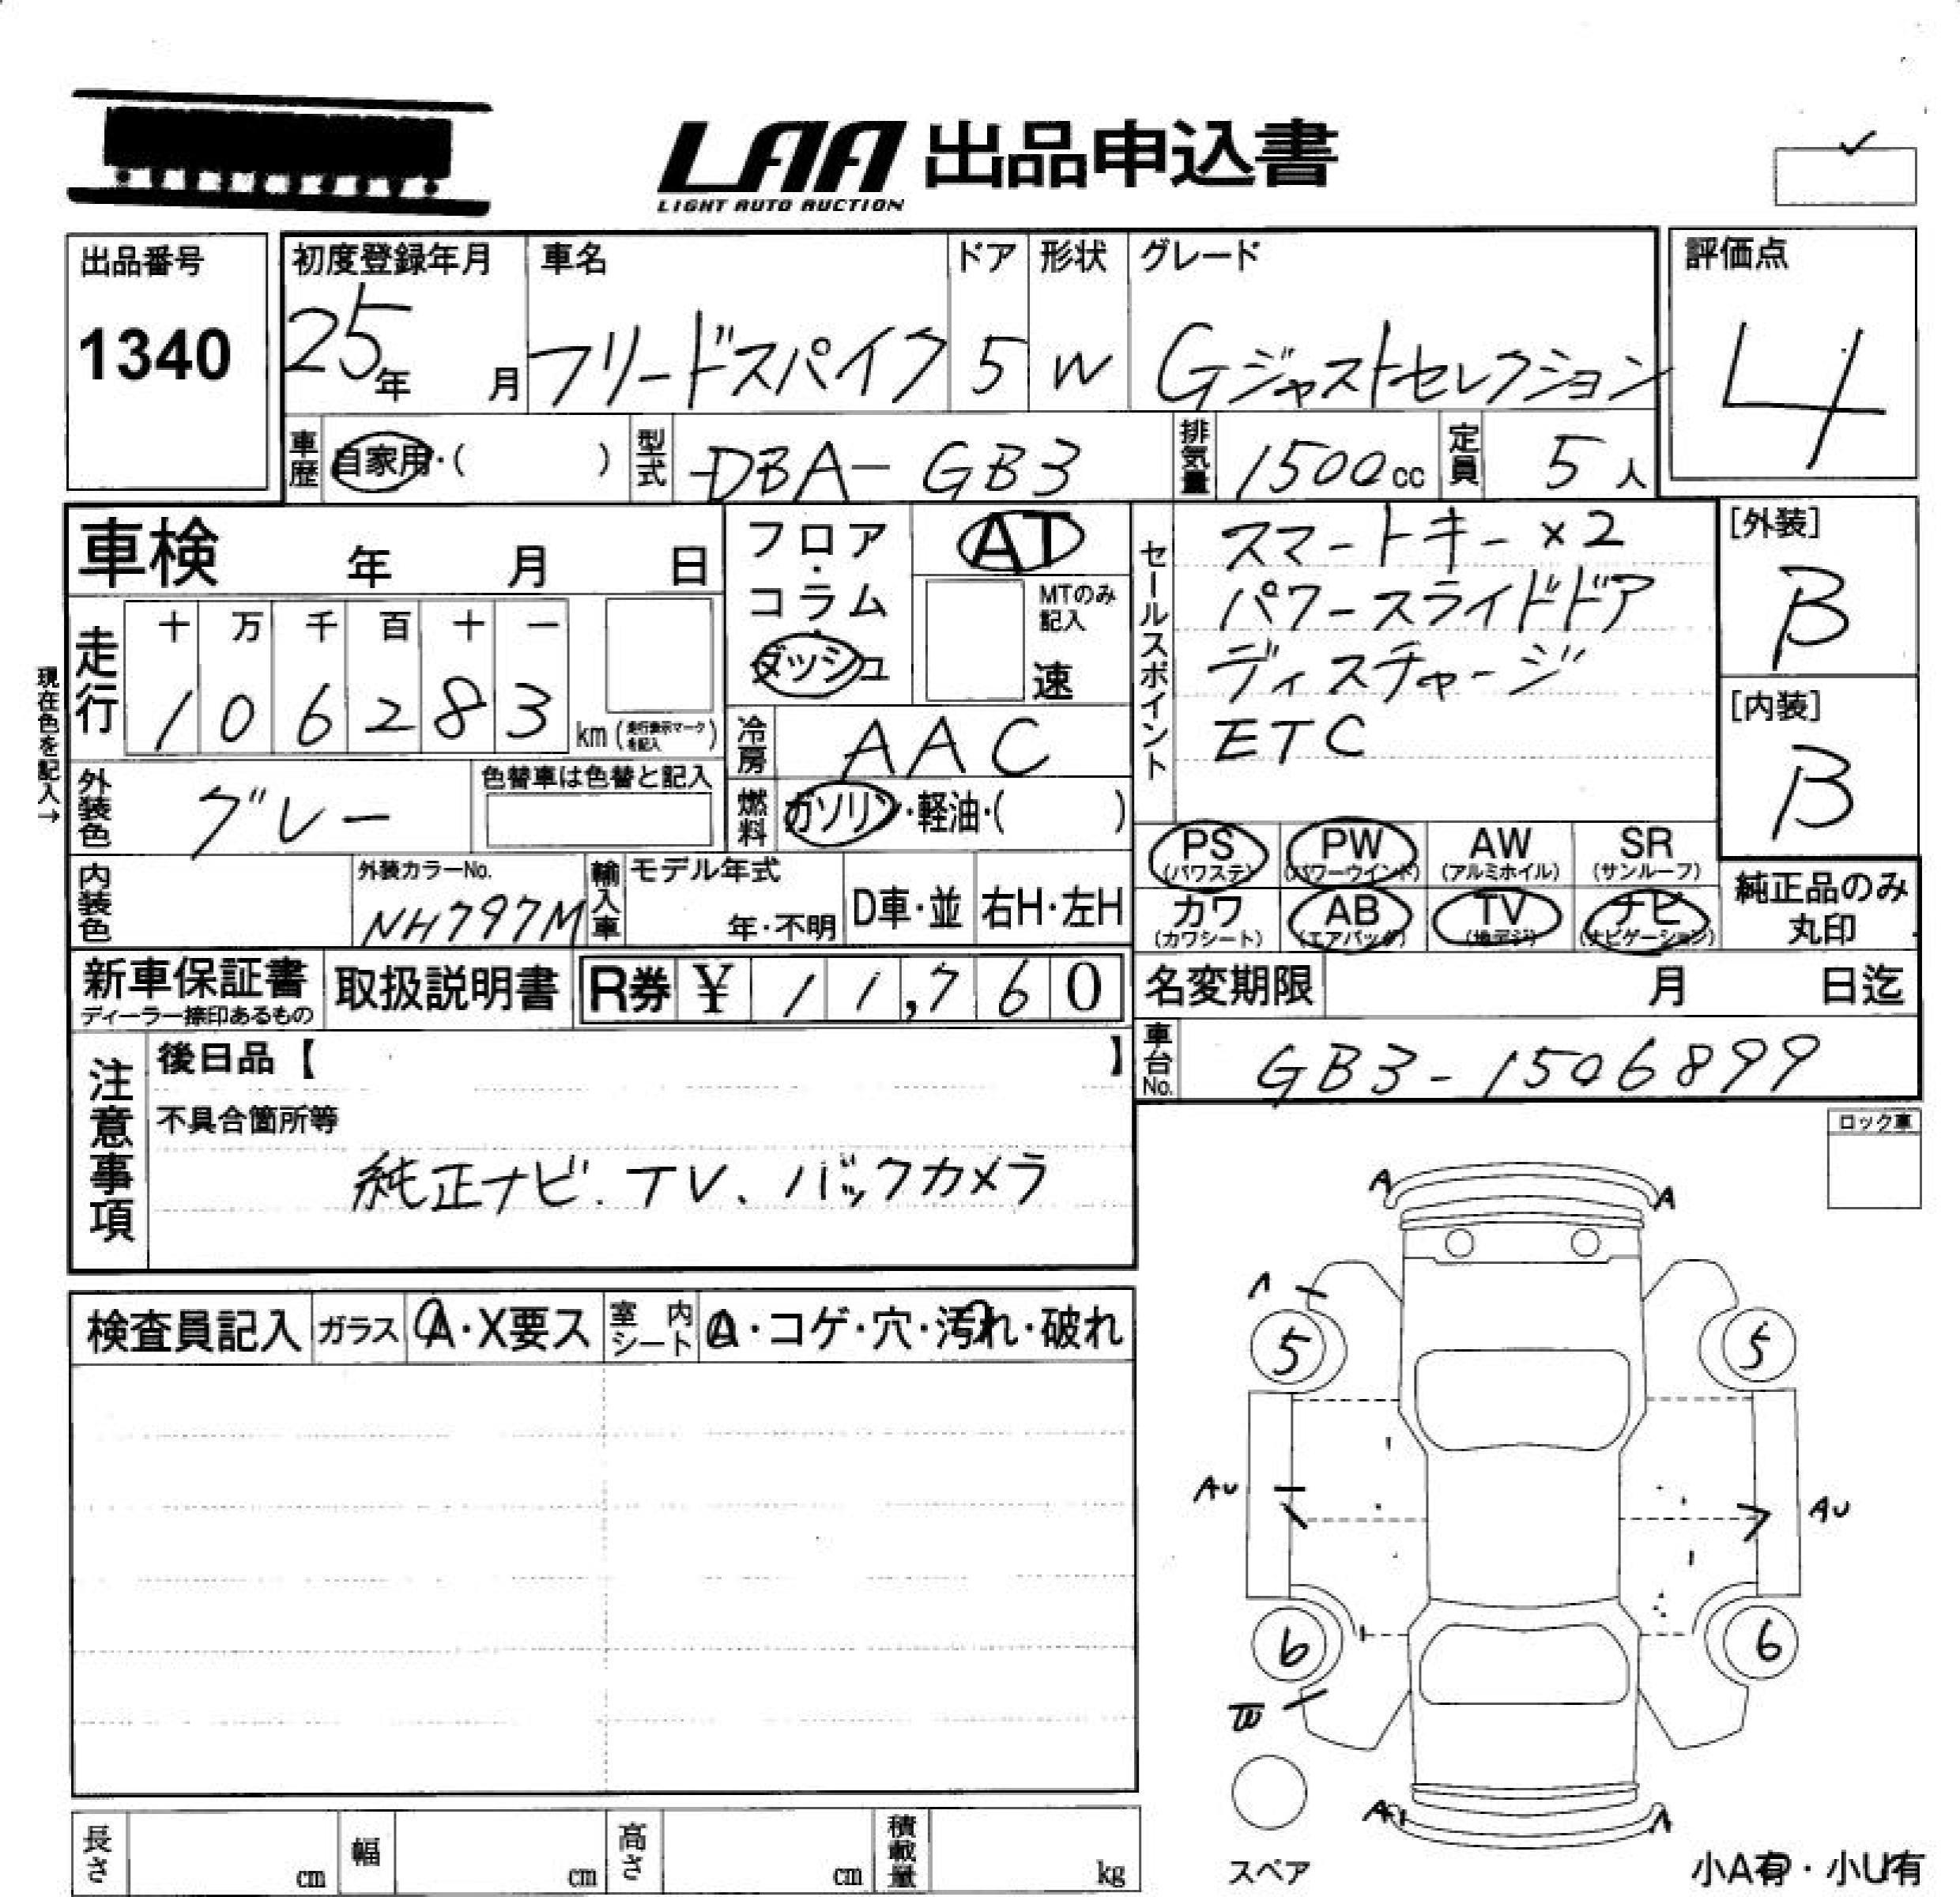 LAA 出品申込書
LIGHT AUTO AUCTION
出品番号
1340
初度登録年月
25年 月
車名
フリードスパイク
ドア
5
形状
W
グレード
Gジャストセレクション
評価点
4
車歴 自家用・( )
型式 DBA-GB3
排気量 1500cc
定員 5人
車検 年 月 日
フロア・コラム・ダッシュ
AT
MTのみ記入
速
セールスポイント
スマートキー×2
パワースライドドア
ディスチャージ
ETC
[外装]
B
[内装]
B
現在色を記入→
走行
十 万 千 百 十 一
1 0 6 2 8 3 km (走行表示マークを記入)
冷房 AAC
外装色 グレー
色替車は色替と記入
燃料 ガソリン・軽油・( )
PS (パワステ)
PW (パワーウインド)
AW (アルミホイル)
SR (サンルーフ)
カワ (カワシート)
AB (エアバック)
TV (地デジ)
ナビ (ナビゲーション)
純正品のみ丸印
内装色
外装カラーNo.
NH797M
輸入車
モデル年式
年・不明
D車・並
右H・左H
新車保証書
ディーラー捺印あるもの
取扱説明書
R券 ¥ 11,760
名変期限 月 日迄
車台No. GB3-1506899
注意事項
後日品【 】
不具合箇所等
純正ナビ.TV、バックカメラ
ロック車
検査員記入
ガラス A・X要ス
室内シート A・コゲ・穴・汚れ・破れ
A A
A
5 5
AU AU
6 6
A A
スペア
小A有・小U有
長さ cm
幅 cm
高さ cm
積載量 kg